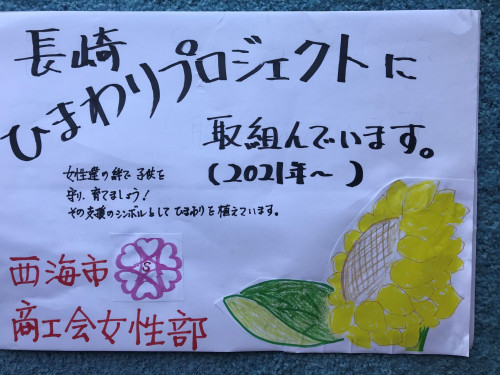 長崎
ひまわりプロジェクトに
取組んでいます。
(2021年〜)
女性達の絆で子供を
守り、育てましょう!
その支援のシンボルとしてひまわりを植えています。
西海市
S
商工会女性部